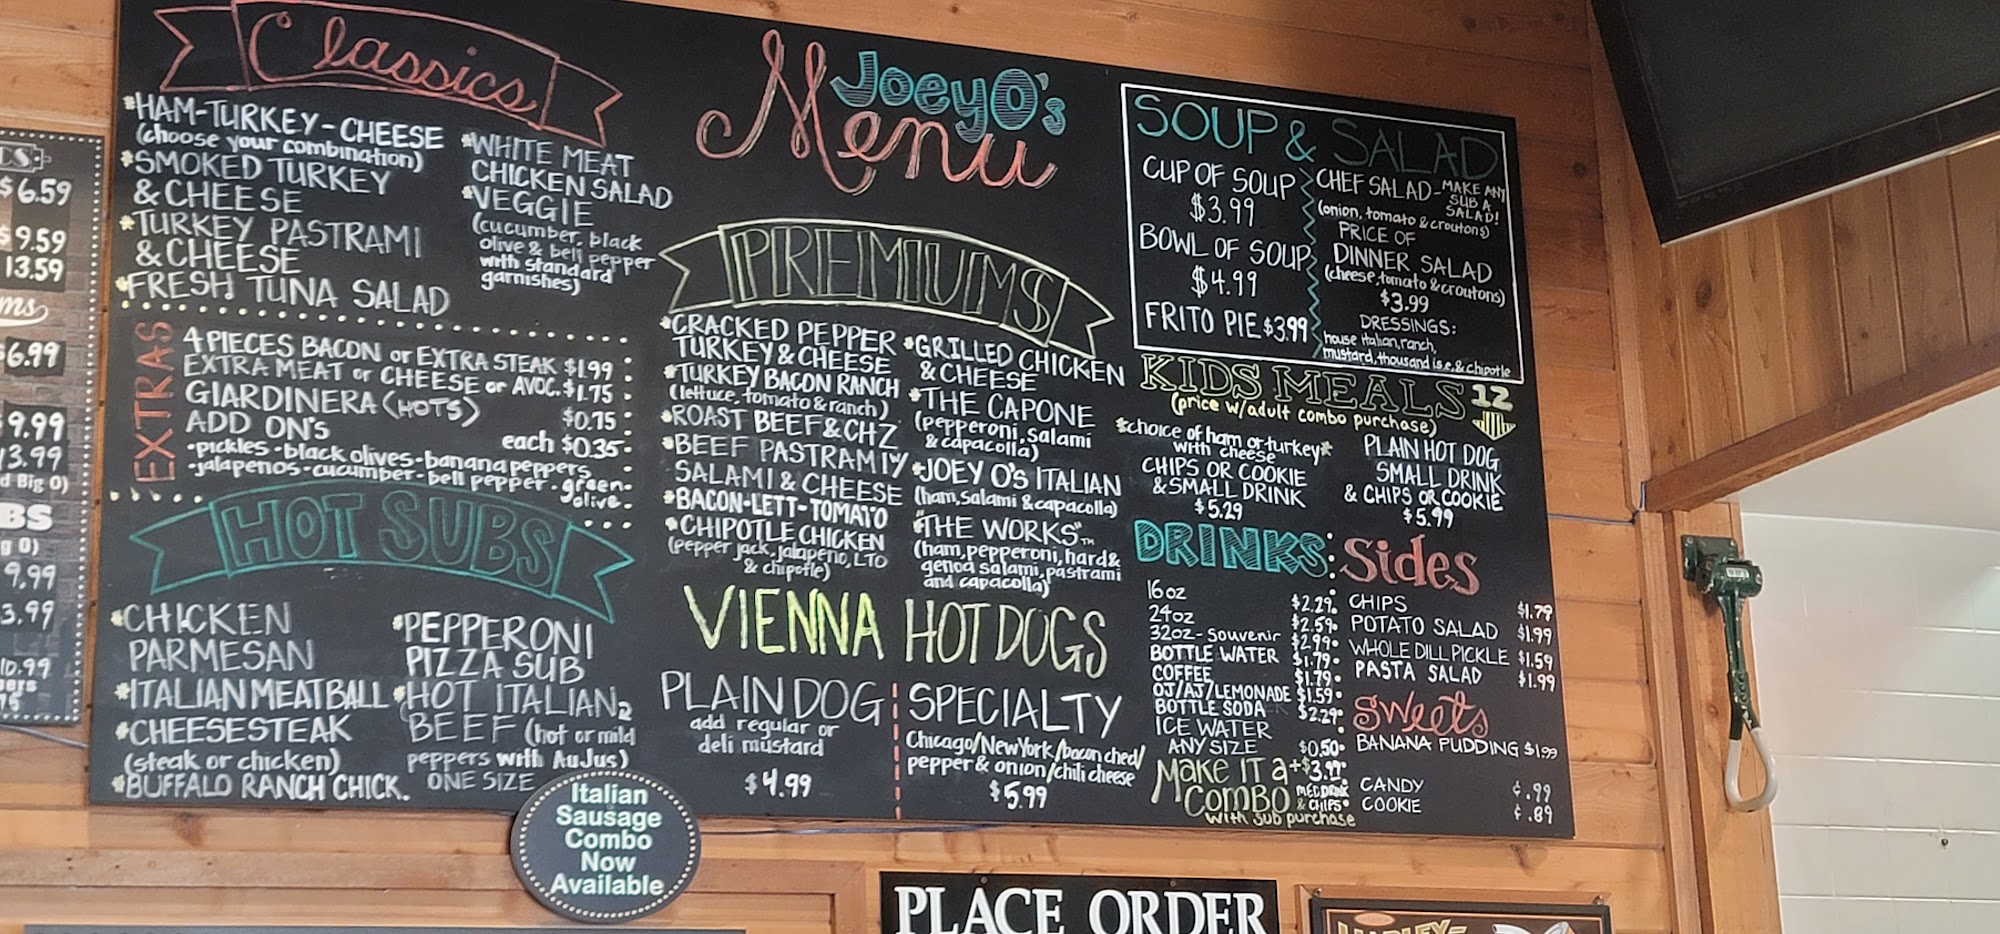 $6.59
$9.59
13.59
ms
6.99
9.99
13.99
d Big O)
BS
g O)
9.99
3.99
10.99
Classics
*HAM-TURKEY-CHEESE
(choose your combination)
*SMOKED TURKEY
& CHEESE
*TURKEY PASTRAMI
& CHEESE
*FRESH TUNA SALAD
*WHITE MEAT
CHICKEN SALAD
*VEGGIE
(cucumber, black
olive & bell pepper
with standard
garnishes)
EXTRAS
4 PIECES BACON or EXTRA STEAK $1.99
EXTRA MEAT or CHEESE or AVOC. $1.75
GIARDINERA (HOTS) $0.75
ADD ON'S each $0.35
•pickles•black olives•banana peppers
•jalapenos•cucumber•bell pepper•green
olive•
HOT SUBS
*CHICKEN
PARMESAN
*ITALIAN MEATBALL
*CHEESESTEAK
(steak or chicken)
*BUFFALO RANCH CHICK.
*PEPPERONI
PIZZA SUB
*HOT ITALIAN
BEEF (hot or mild
peppers with AuJus)
ONE SIZE
Italian
Sausage
Combo
Now
Available
JoeyO's
Menu
PREMIUMS
*CRACKED PEPPER
TURKEY & CHEESE
*TURKEY BACON RANCH
(lettuce, tomato & ranch)
*ROAST BEEF & CHZ
*BEEF PASTRAMI w/
SALAMI & CHEESE
*BACON-LETT-TOMATO
*CHIPOTLE CHICKEN
(pepper jack, jalapeño, LTO
& chipotle)
*GRILLED CHICKEN
& CHEESE
*THE CAPONE
(pepperoni, salami
& capacolla)
*JOEY O'S ITALIAN
(ham, salami & capacolla)
"THE WORKS"™
(ham, pepperoni, hard &
genoa salami, pastrami
and capacolla)
VIENNA HOT DOGS
PLAIN DOG
add regular or
deli mustard
$4.99
SPECIALTY
Chicago/New York/bacon ched/
pepper & onion/chili cheese
$5.99
SOUP & SALAD
CUP OF SOUP
$3.99
BOWL OF SOUP
$4.99
FRITO PIE $3.99
CHEF SALAD-MAKE ANY
SUB A
SALAD!
(onion, tomato & croutons)
PRICE OF
DINNER SALAD
(cheese, tomato & croutons)
$3.99
DRESSINGS:
house italian, ranch,
mustard, thousand is.e. & chipotle
KIDS MEALS 12
(price w/adult combo purchase)
*choice of ham or turkey*
with cheese
CHIPS OR COOKIE
& SMALL DRINK
$5.29
PLAIN HOT DOG
SMALL DRINK
& CHIPS OR COOKIE
$5.99
DRINKS:
16oz $2.29
24oz $2.59
32oz-Souvenir $2.99
BOTTLE WATER $1.79
COFFEE $1.79
OJ/AJ/LEMONADE $1.59
BOTTLE SODA $2.29
ICE WATER
ANY SIZE $0.50
Make it a +$3.99
Combo MED DRINK
& CHIPS
with sub purchase
Sides
CHIPS $1.79
POTATO SALAD $1.99
WHOLE DILL PICKLE $1.59
PASTA SALAD $1.99
Sweets
BANANA PUDDING $1.99
CANDY ¢.99
COOKIE ¢.89
PLACE ORDER
HARLEY-